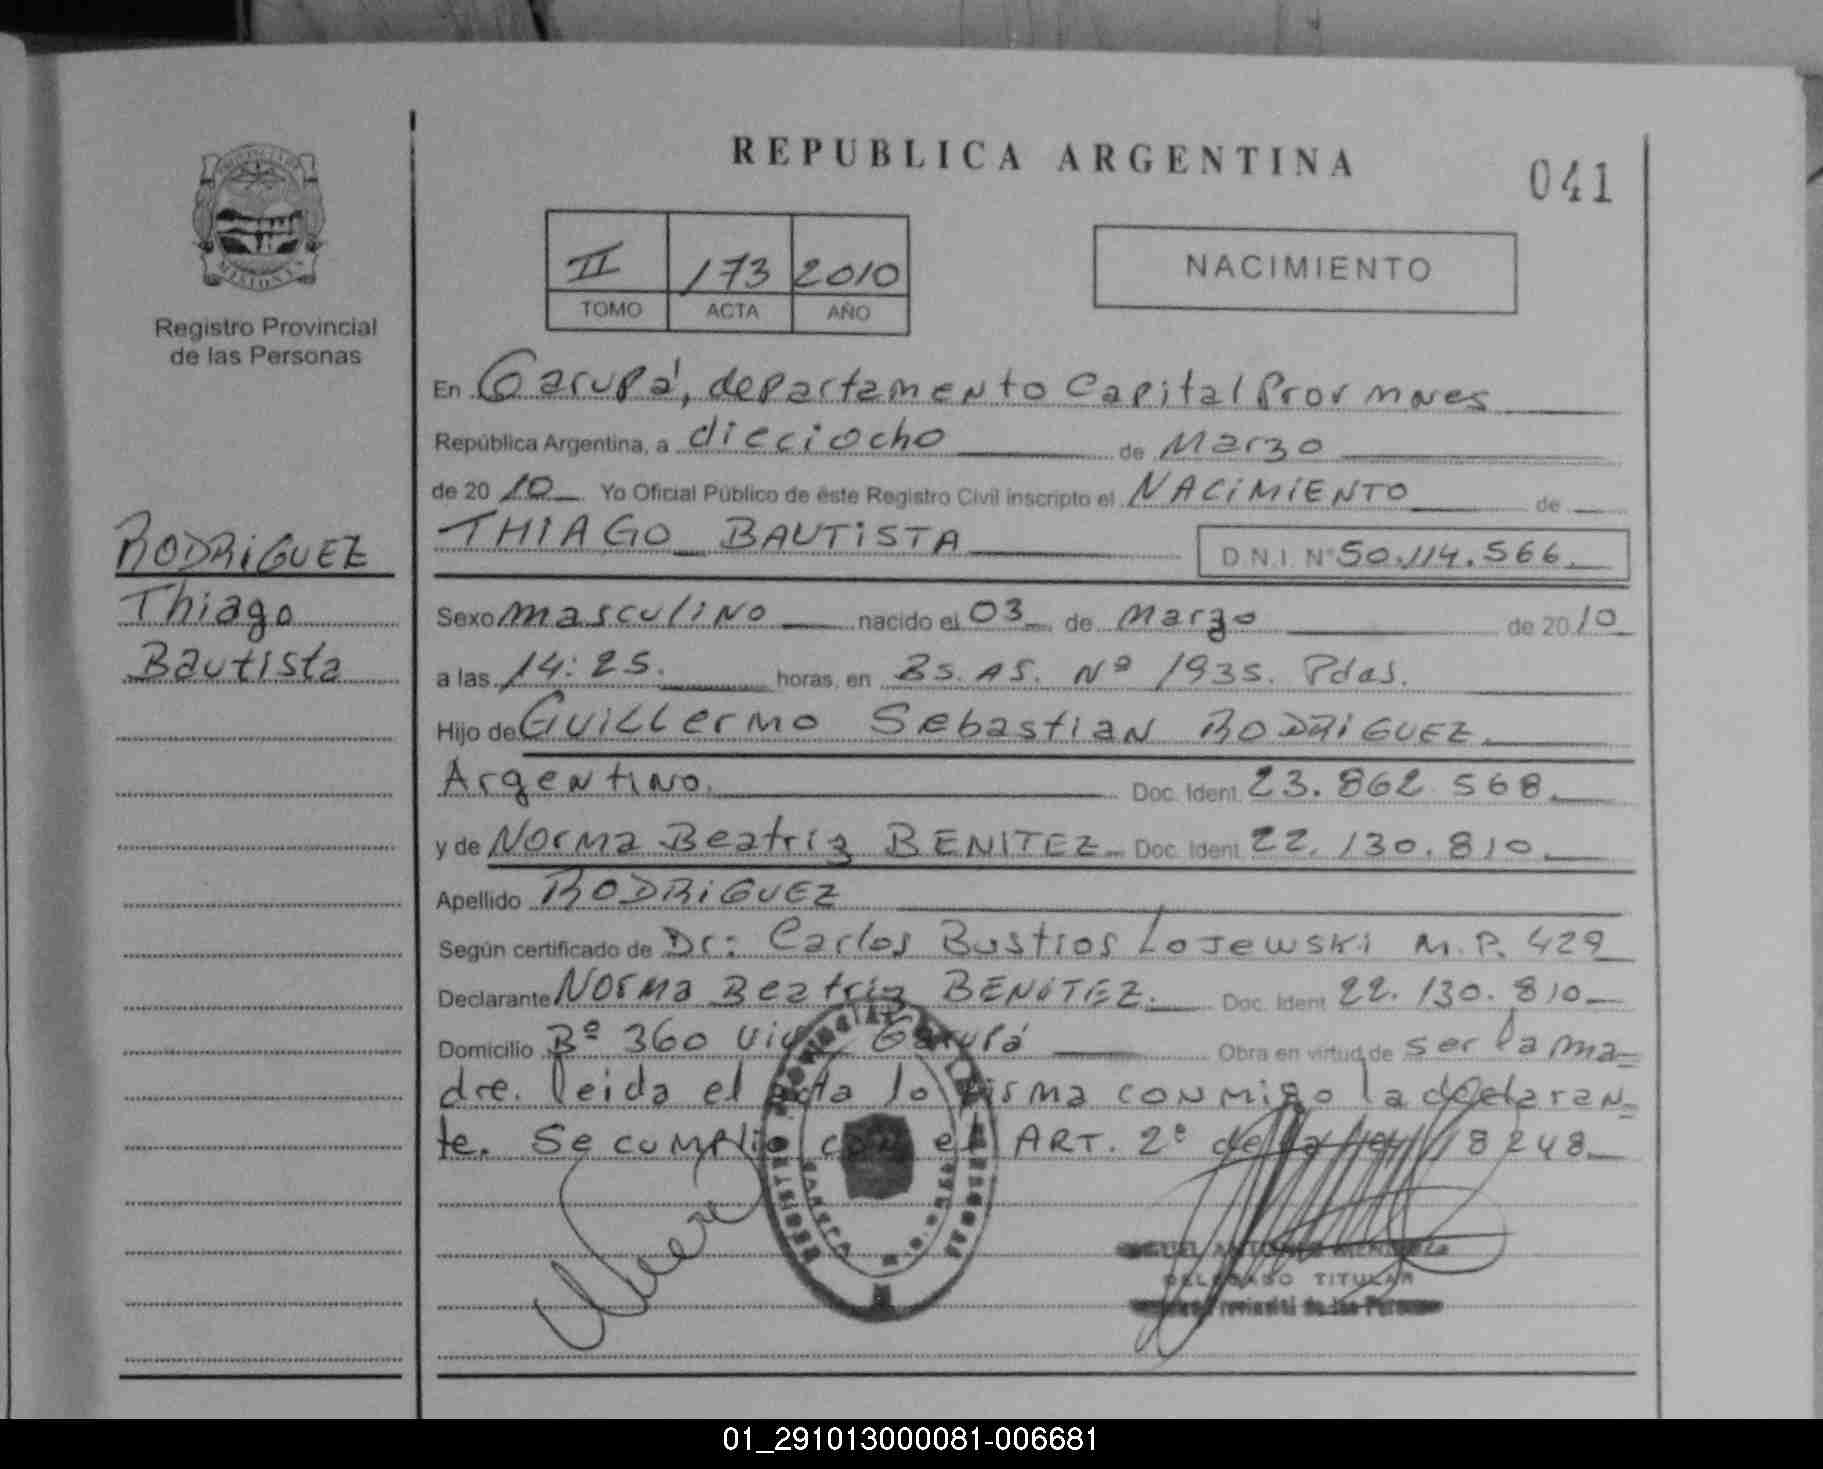 REPUBLICA ARGENTINA
041
II 173 2010
TOMO ACTA AÑO
NACIMIENTO
MISIONES
Registro Provincial
de las Personas
RODRIGUEZ
Thiago
Bautista
En Garupá, departamento Capital Prov mnes
República Argentina, a dieciocho de Marzo
de 2010 Yo Oficial Público de éste Registro Civil inscripto el NACIMIENTO de
THIAGO BAUTISTA D.N.I. Nº 50.114.566
Sexo masculino nacido el 03 de Marzo de 2010
a las 14:25. horas, en Bs. As. Nº 1935. Pdas.
Hijo de Guillermo Sebastian RODRIGUEZ
Argentino. Doc. Ident. 23.862.568.
y de Norma Beatriz BENITEZ Doc. Ident. 22.130.810
Apellido RODRIGUEZ
Según certificado de Dr: Carlos Bustios Lojewski M.P. 429
Declarante Norma Beatriz BENITEZ. Doc. Ident. 22.130.810
Domicilio Bº 360 viv. Garupá Obra en virtud de ser la ma=
dre. leida el acta lo firma conmigo la declaran=
te. Se cumplio con el ART. 2º de la ley 18248
ANTONIO
DELEGADO TITULAR
Provincial de las Personas
01_291013000081-006681